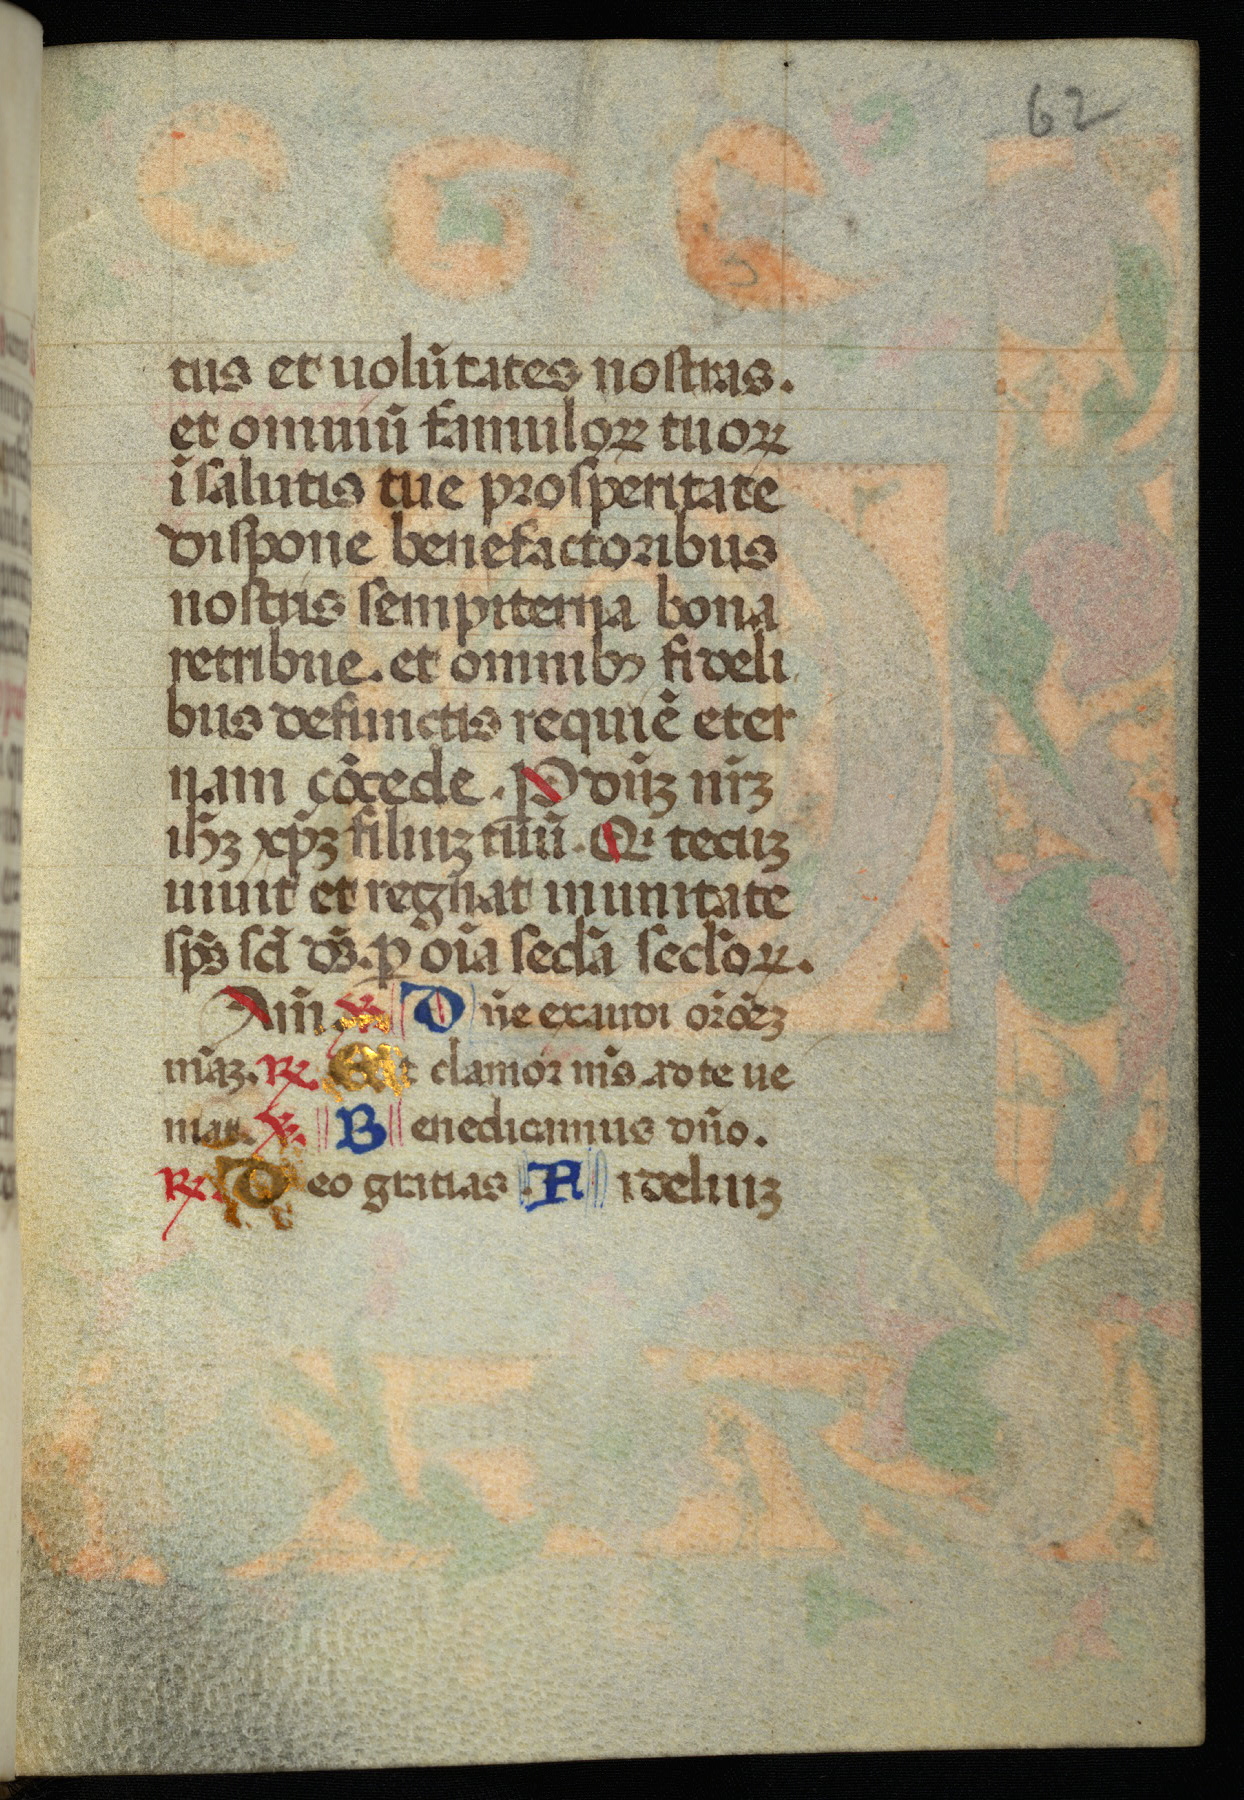 62
tus et uolũtates nostras.
et omniũ famuloꝝ tuoꝝ
ĩ salutis tue prosperitate
dispone benefactoribus
nostris sempiterna bona
retribue. et omnibꝰ fideli
bus defunctis requiẽ eter
nam cõcede. P dñꝫ nr̃ꝫ
ih̃ꝫ xp̃ꝫ filiuꝫ tuũ. Qi tecuꝫ
uiuit et regnat in unitate
sp̃s sc̃i ds̃. ꝑ oĩa secl̃a secl̃oꝝ.
Am̃ ℣ Dñe exaudi or̃õeꝫ
m̃aꝫ. ℟ Et clamor m̃s ad te ue
niat. ℣ Benedicamus dño.
℟ Deo gratias. Fideliuꝫ